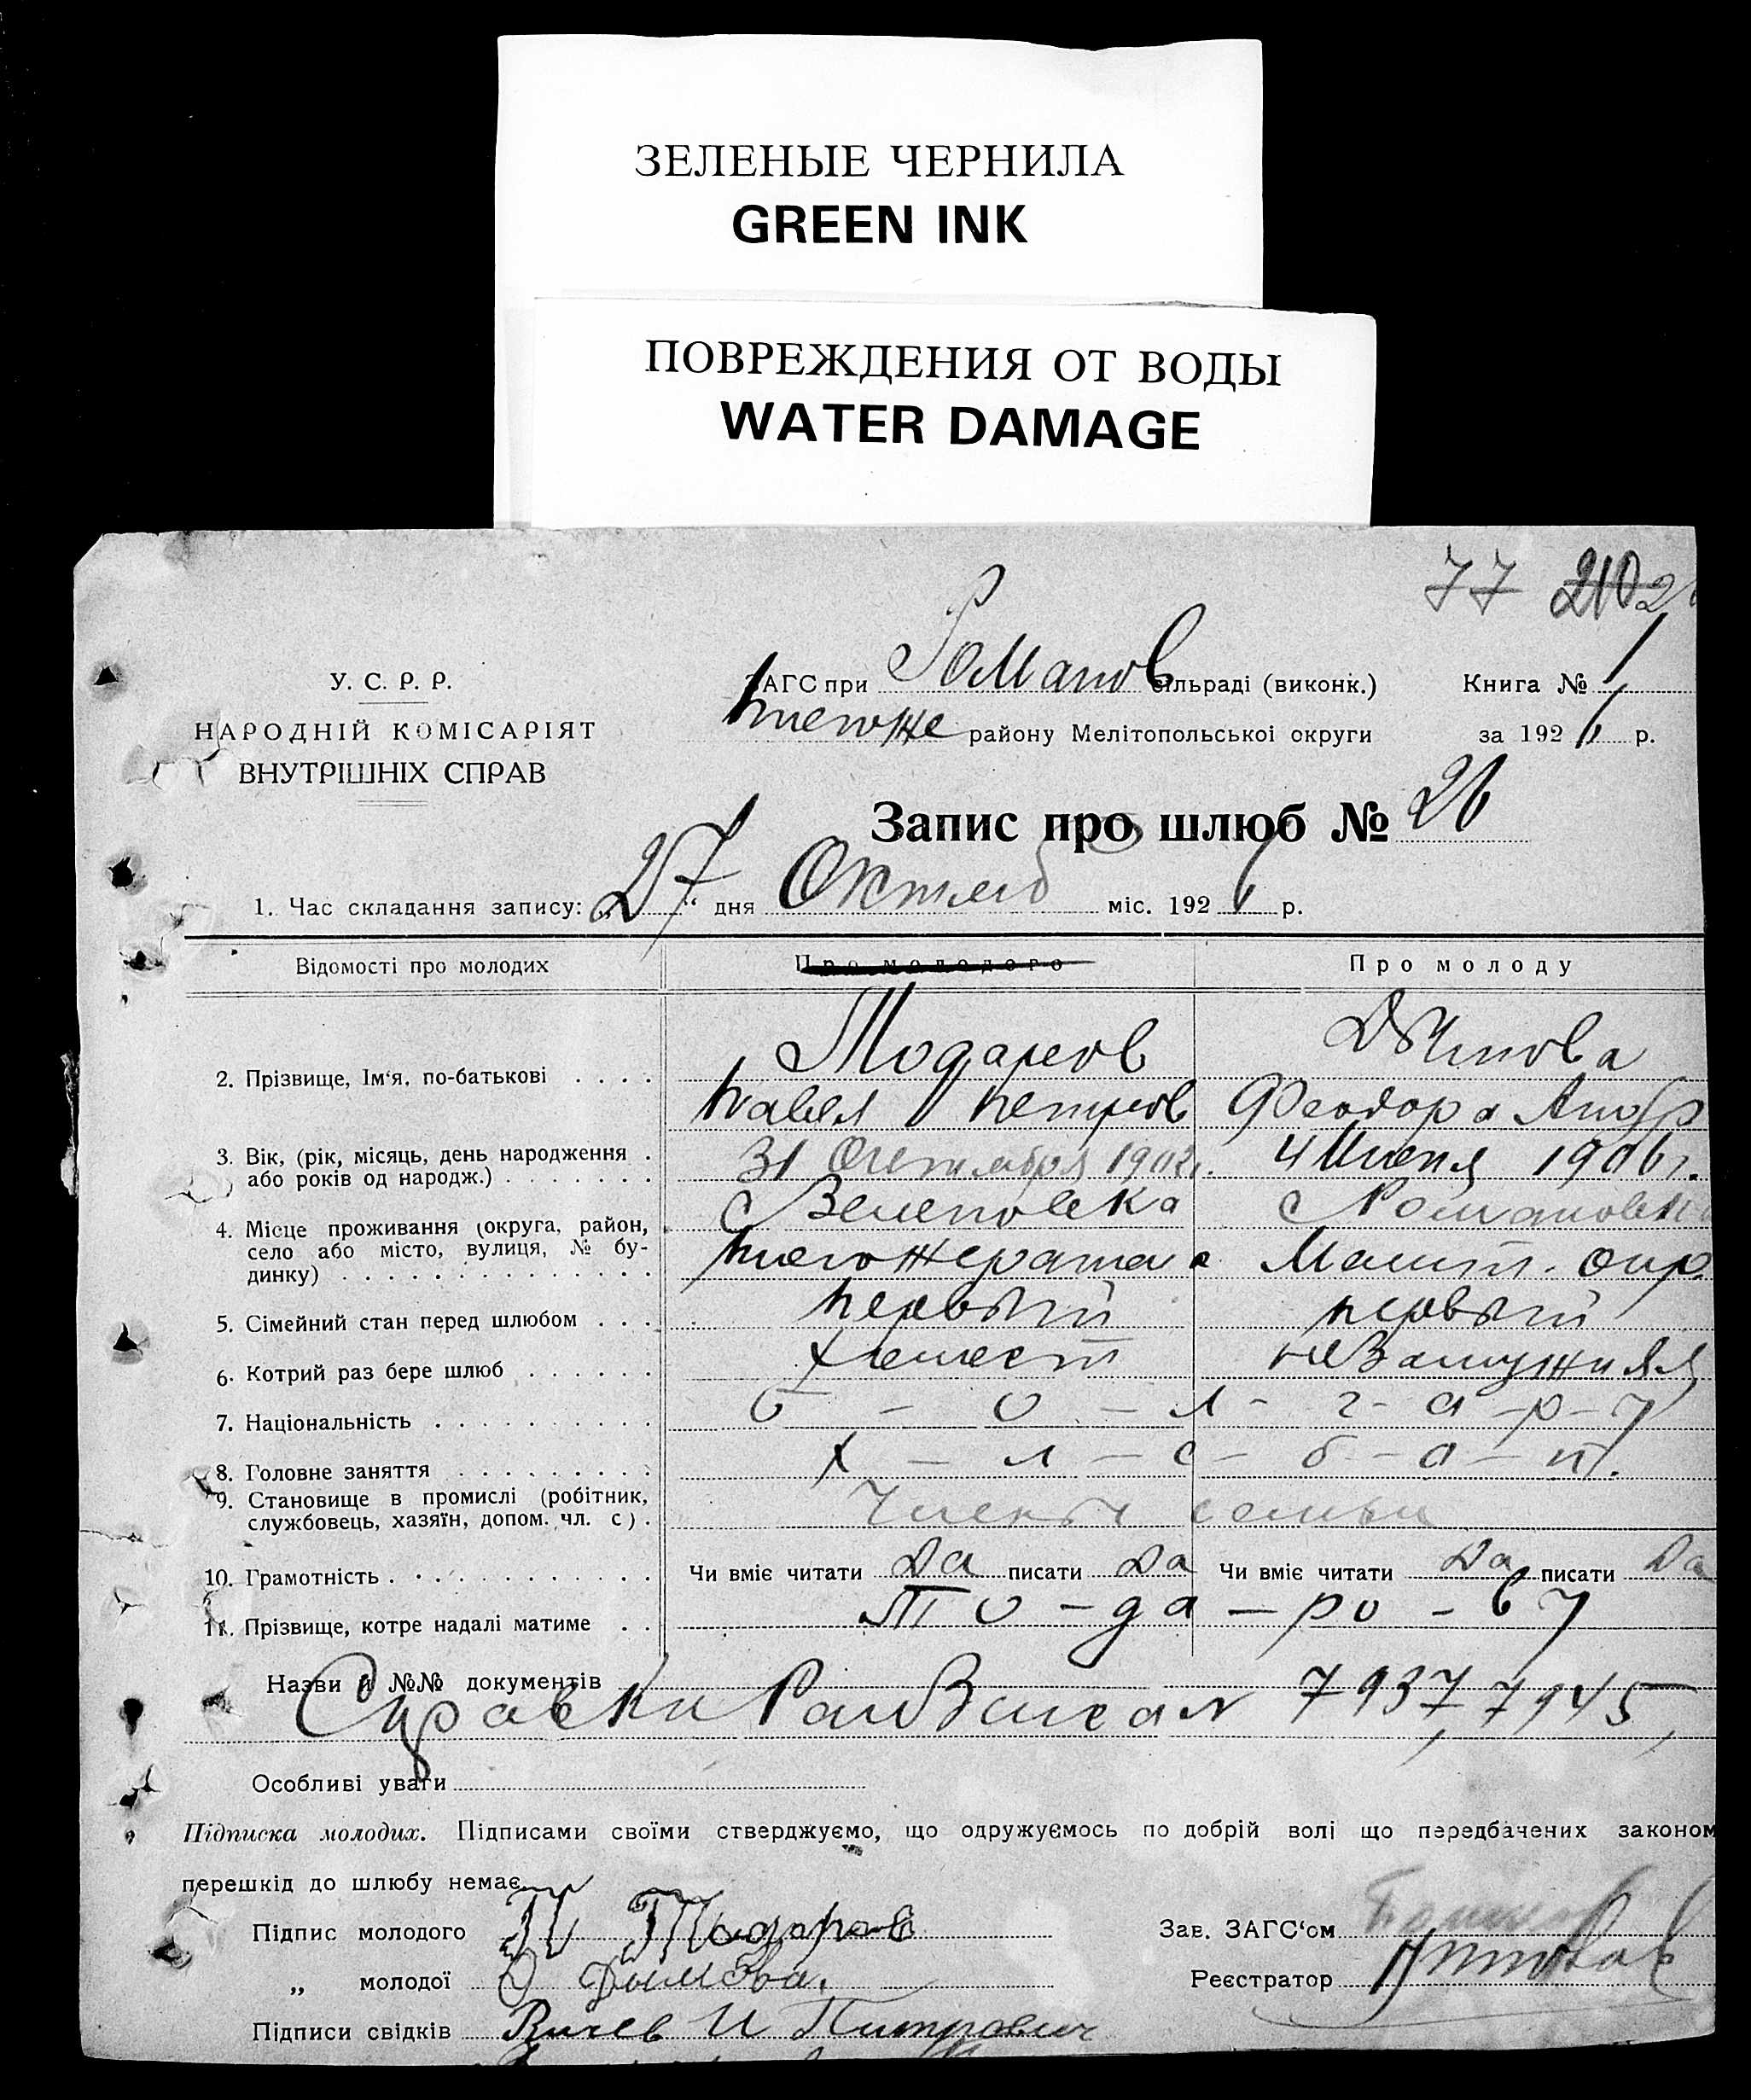 ЗЕЛЕНЫЕ ЧЕРНИЛА
GREEN INK
ПОВРЕЖДЕНИЯ ОТ ВОДЫ
WATER DAMAGE
77 210
У. С. Р. Р.
НАРОДНІЙ КОМІСАРІЯТ
ВНУТРІШНІХ СПРАВ
ЗАГС при Романов сільраді (виконк.)
району Мелітопольської округи
Книга № 1
за 1926 р.
Запис про шлюб № 26
1. Час складання запису: „27“ дня Октяб міс. 1926 р.
Відомості про молодих
Про молодого
Про молоду
2. Прізвище, Ім'я, по-батькові . . . .
Тодаров
Павел Петров
Дымова
Феодора Андр
3. Вік, (рік, місяць, день народження .
або років од народж.) . . . . . . .
31 Октября 1902г.
4 Июня 1906г.
4. Місце проживання (округа, район,
село або місто, вулиця, № бу-
динку) . . . . . . . . . . . . . .
с Зеленовска
с Романовка
Мелит. окр.
5. Сімейний стан перед шлюбом . . .
первый
первый
6. Котрий раз бере шлюб . . . . . .
холост
незамужняя
7. Національність . . . . . . . . . .
б - о - л - г - а - р - у
8. Головне заняття . . . . . . . . .
х - л - е - б - о - п.
9. Становище в промислі (робітник,
службовець, хазяїн, допом. чл. с) .
Члены семьи
10. Грамотність . . . . . . . . . . .
Чи вміє читати Да писати Да
Чи вміє читати Да писати Да
11. Прізвище, котре надалі матиме . .
То - да - ро - вы
Назви й №№ документів
Справки 7937, 7945,
Особливі уваги
Підписка молодих. Підписами своїми стверджуємо, що одружуємось по добрій волі що передбачених законом
перешкід до шлюбу немає.
Підпис молодого П Тодоров
„ молодої Ф Дымова.
Зав. ЗАГС'ом
Реєстратор
Підписи свідків И Питрович